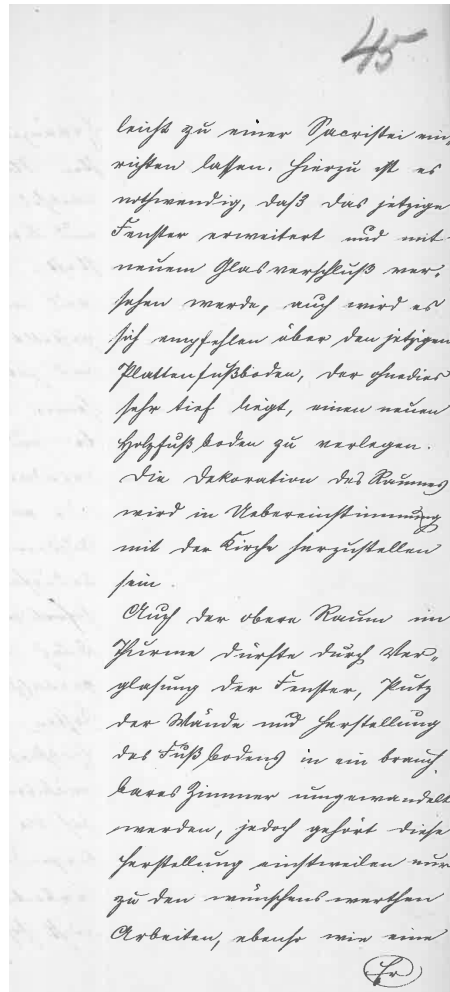 45
leicht zu einer Sacristei ein,
richten lassen. Hierzu ist es
nothwendig, daß das jetzige
Fenster erweitert und mit
neuem Glasverschluß ver,
sehen werde, auch wird es
sich empfehlen über den jetzigen
Plattenfußboden, der ohnedies
sehr tief liegt, einen neuen
Holzfußboden zu verlegen.
Die Dekoration des Raumes
wird in Uebereinstimmung
mit der Kirche herzustellen
sein.
Auch der obere Raum im
Thurme dürfte durch Ver,
glasung der Fenster, Putz
der Wände und Herstellung
des Fußbodens in ein brauch,
bares Zimmer umgewandelt
werden, jedoch gehört diese
Herstellung einstweilen nur
zu den wünschenswerthen
Arbeiten, ebenso wie eine